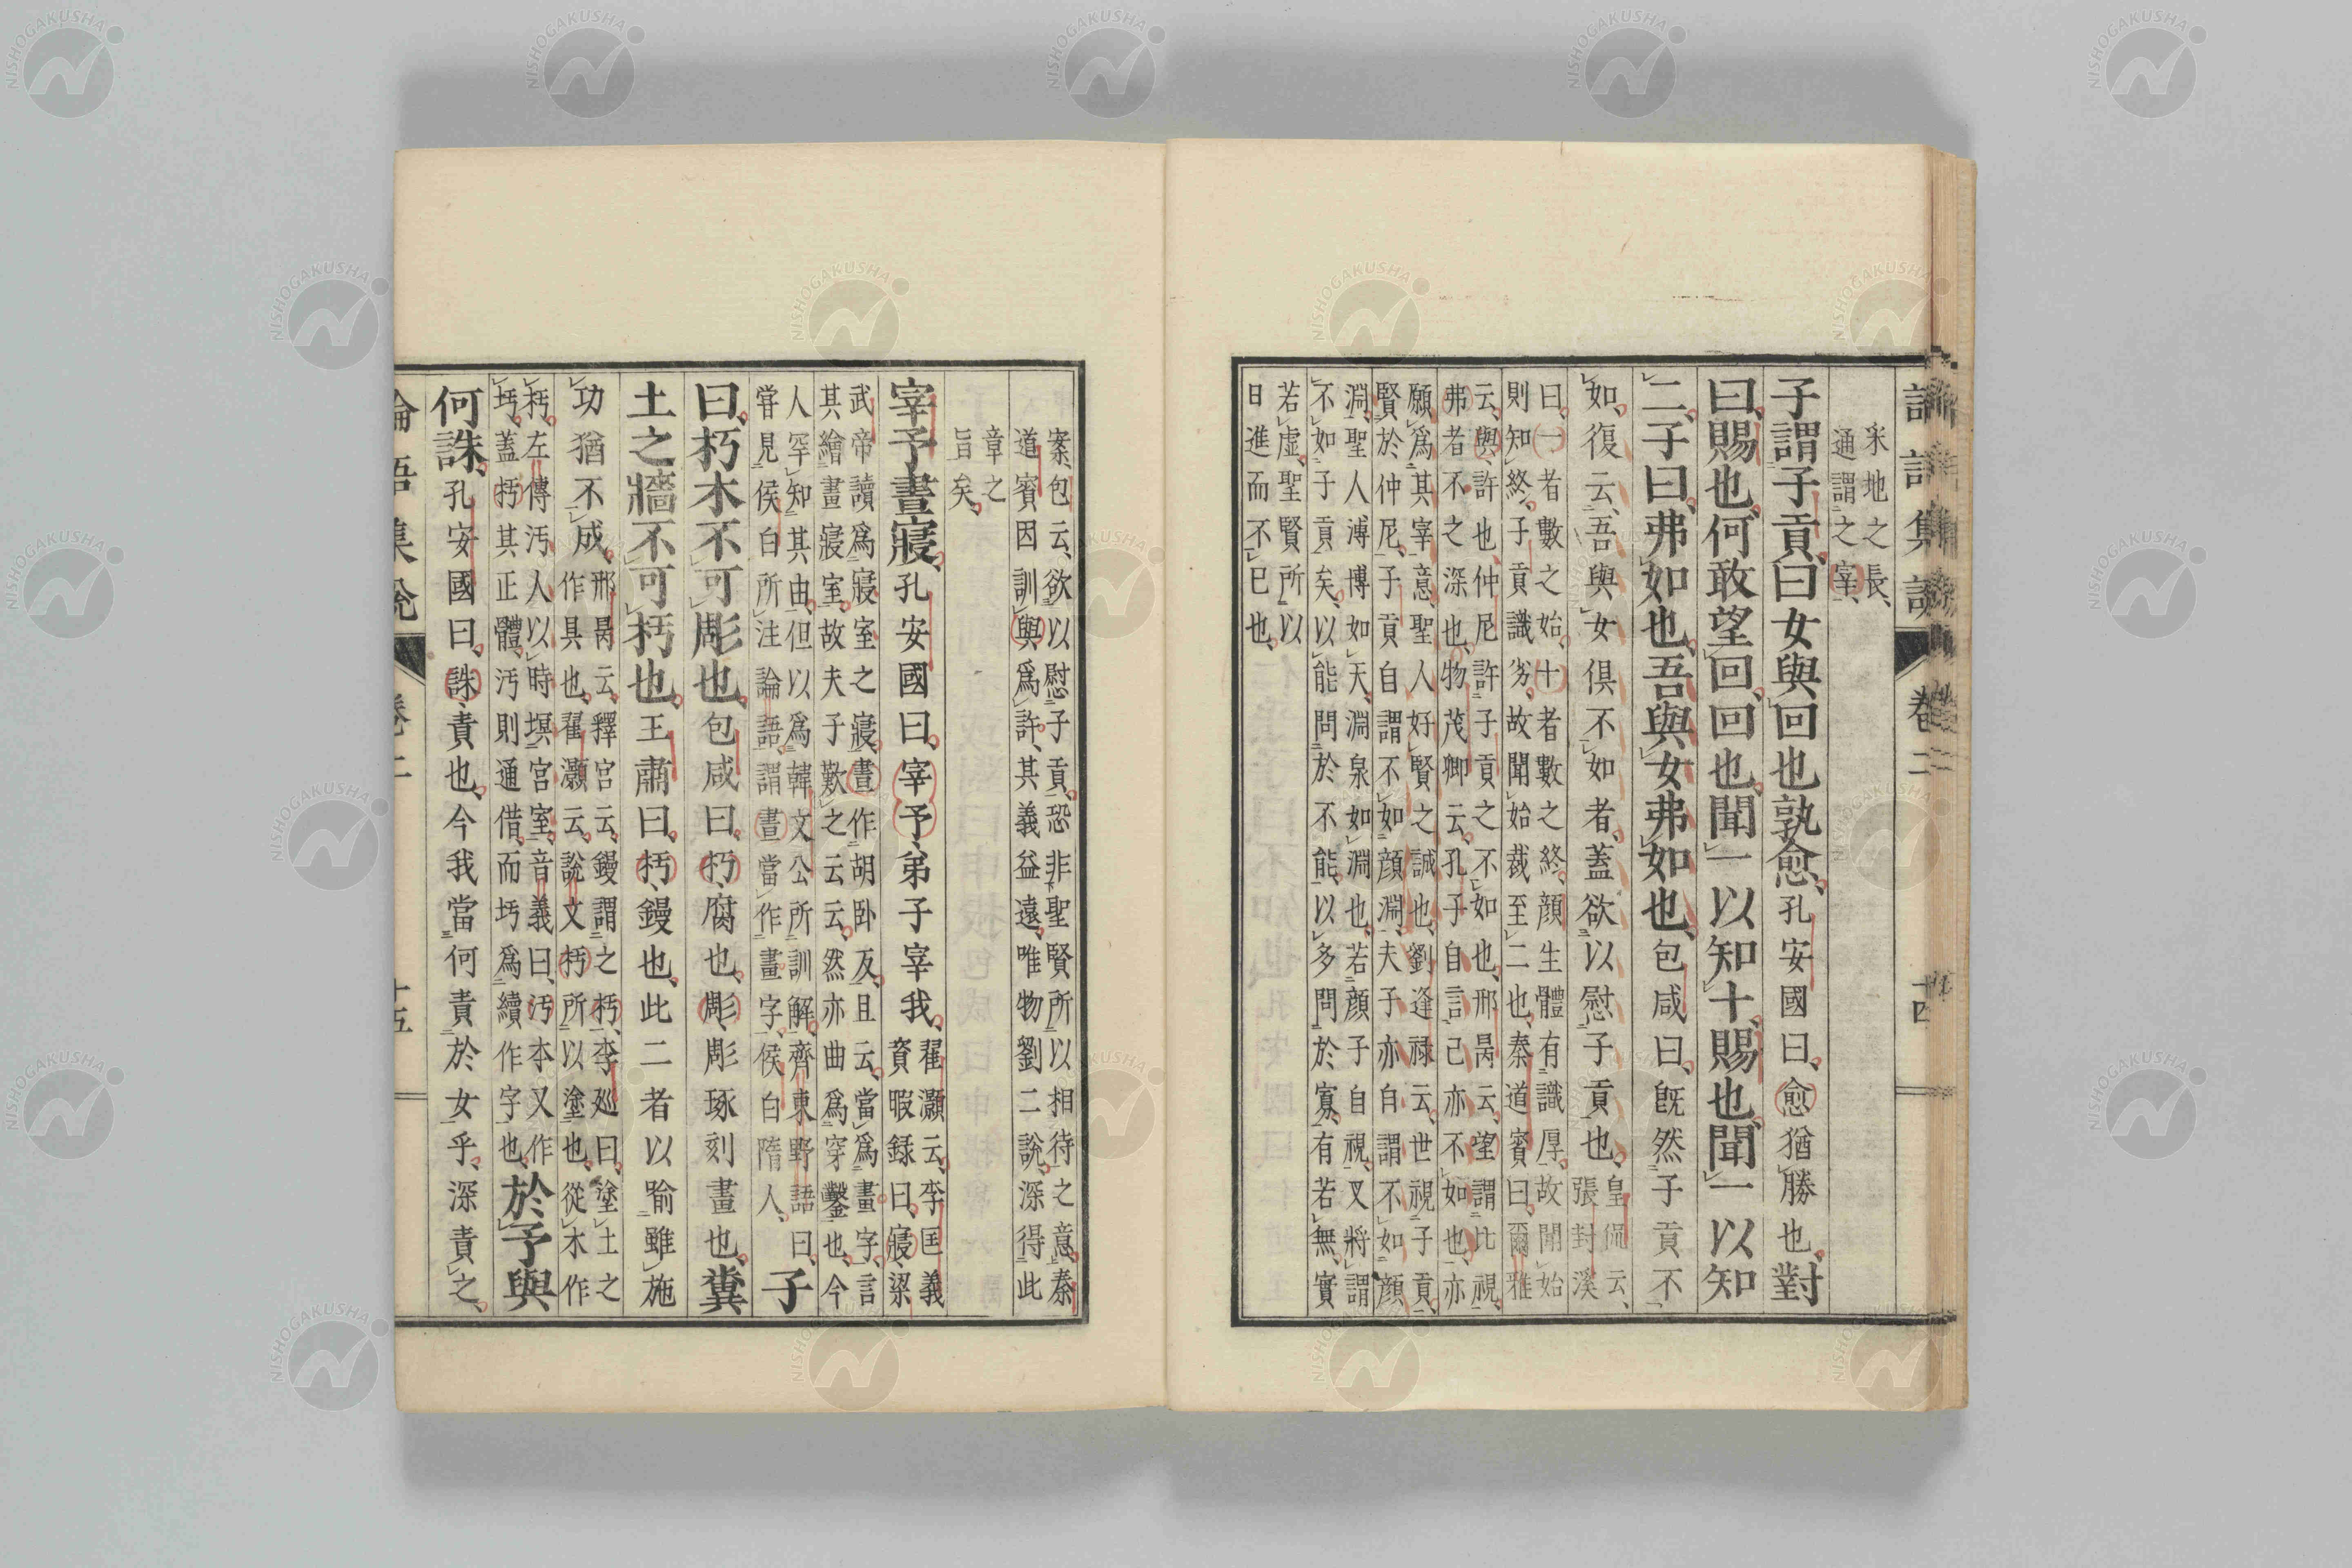 論語集說 卷二 十四
采地之長、
通謂之宰、
子謂子貢、曰女與回也孰愈、孔安國曰、愈猶勝也。對
曰、賜也、何敢望回。回也、聞一以知十、賜也、聞一以知
二。子曰、弗如也、吾與女弗如也、包咸曰、既然子貢不
如、復云、吾與女俱不如者、蓋欲以慰子貢也、皇侃云、
張封溪
曰、一者數之始、十者數之終、顏生體有識厚。故聞始
則知終。子貢識劣、故聞始裁至二也、秦道賓曰、爾雅
云、與、許也、仲尼許子貢之不如也、邢昺云、望謂比視、
弗者不之深也、物茂卿云、孔子自言己亦不如也、亦
願爲其宰意、聖人好賢之誠也、劉逢祿云、世視子貢、
賢於仲尼、子貢自謂不如顏淵、夫子亦自謂不如顏
淵、聖人溥博如天、淵泉如淵也、若顏子自視、又將謂
不如子貢矣、以能問於不能、以多問於寡、有若無、實
若虛、聖賢所以
日進而不已也、
案、包云、欲以慰子貢、恐非聖賢所以相待之意、秦
道賓因訓與爲許、其義益遠、唯物劉二說、深得此
章之
旨矣、
宰予晝寢、孔安國曰、宰予、弟子宰我、翟灝云、李匡義
資暇錄曰、寢、梁
武帝讀爲寢室之寢、晝作胡卧反、且云、當爲畫字、言
其繪畫寢室、故夫子歎之云云、然亦曲爲穿鑿也、今
人罕知其由、但以爲韓文公所訓解、齊東野語曰、
甞見侯白所注論語、謂晝當作畫字、侯白隋人、子
曰、朽木不可彫也、包咸曰、朽、腐也、彫、彫琢刻畫也。糞
土之牆不可杇也。王肅曰、杇、鏝也、此二者以喻雖施
功猶不成。邢昺云、釋宮云、鏝謂之杇、李廵曰、塗土之
作具也、翟灝云、說文杇所以塗也、從木作
杇、左傳汚人以時塓宮室、音義曰、汚本又作
圬、蓋杇其正體、汚則通借、而圬爲續作字也、於予與
何誅。孔安國曰、誅、責也、今我當何責於女乎、深責之。
論語集說 卷二 十五
NISHOGAKUSHA